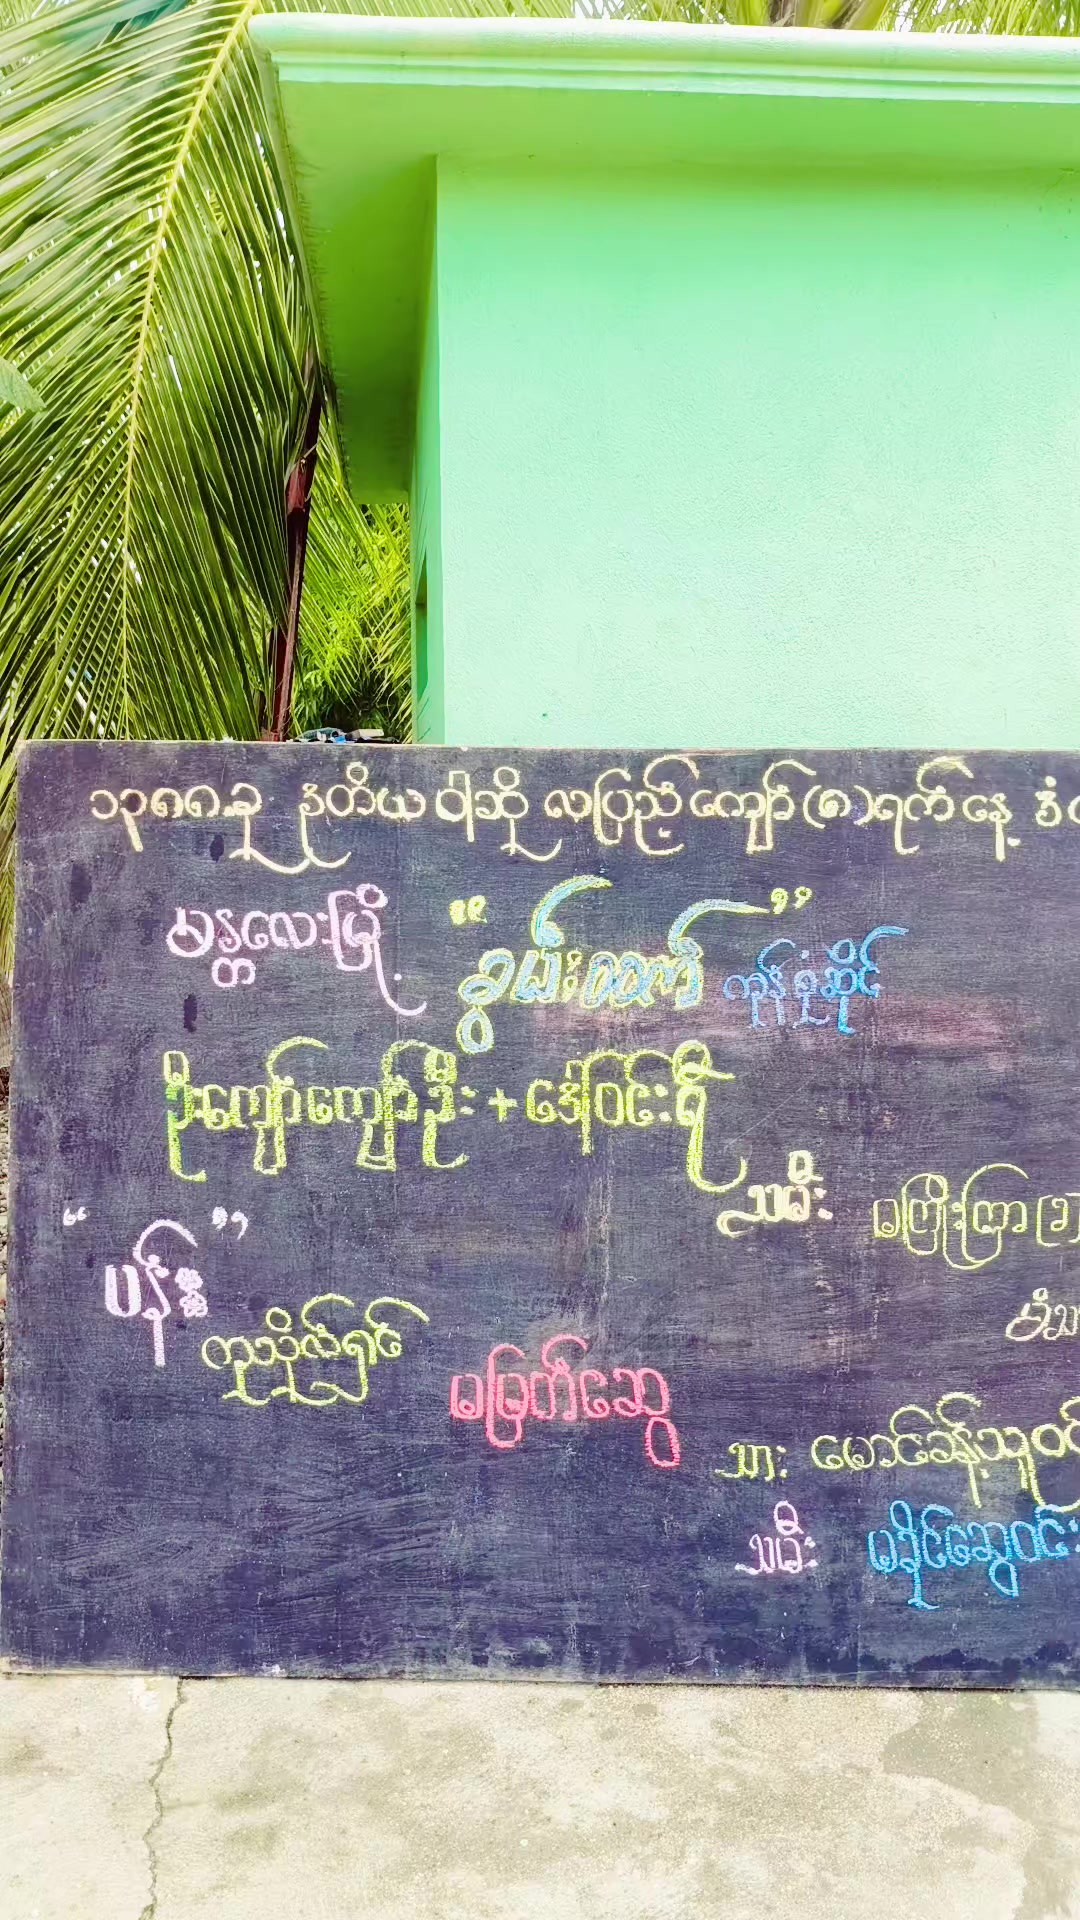 ၁၃၈၈ ခု ဒုတိယ ဝါဆို လပြည့်ကျော် (၈) ရက် နေ့
မန္တလေးမြို့ "ဒွမ်းတော်" ကုန်စုံဆိုင်
ဦးကျော်ကျော်ဦး + ဒေါ်ဝင်းရီ
သမီး မကြိုးကြာ
"ပန်းနု"
ကုသိုလ်ရှင် မမြတ်ဆွေ
သား မောင်ခန့်သူဝင်း
သမီး မခိုင်ဆွေဝင်း